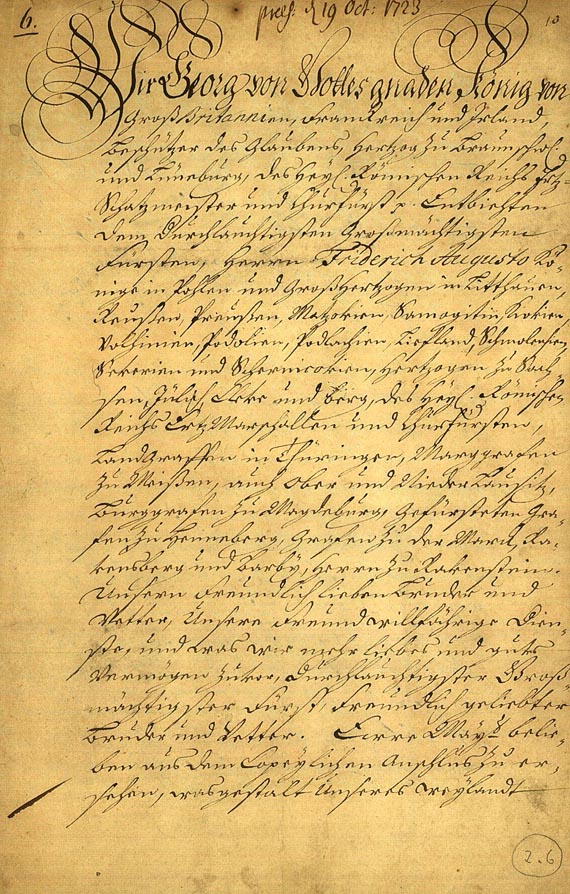 6.
præs. d. 19 Oct: 1723
10
Wir Georg von Gottes gnaden, König von
Groß Britannien, Franckreich und Irland,
Beschützer des Glaubens, Hertzog zu Braunschw.
und Lüneburg, des Heyl. Römischen Reichs Ertz-
Schatzmeister und Churfürst p. Entbiehten
dem Durchlauchtigsten Großmächtigsten
Fürsten, Herrn Friderich Augusto Kö-
nige in Pohlen und Großhertzogen in Litthauen,
Reußen, Preußen, Mazovien, Samogitin, Kiovien,
Volhinien, Podolien, Podlachien, Liefland, Schmolensko,
Severien und Schernicovien, Hertzogen zu Sach-
sen, Jülich Cleve und Berg, des Heyl. Römischen
Reichs Ertz Marschallen und Churfürsten,
Landgraffen in Thüringen, Marggrafen
zu Meißen, auch Ober und Nieder Lausitz,
Burggrafen zu Magdeburg, Gefürsteten Gra-
fen zu Henneberg, Grafen zu der Marck, Ra-
vensberg und Barby, Herrn zu Ravenstein.
Unsern freundlich lieben Bruder und
Vetter, Unsere freundwillfährige Dien-
ste, und was wir mehr liebes und guts
vermögen zuvor, Durchlauchtigster Groß
mächtigster Fürst, freundlich geliebter
Bruder und Vetter. Eure Mayt. belie-
ben aus dem Copeylichen Anschlus zu er-
sehen, wasgestalt Unseres weylandt
2.6